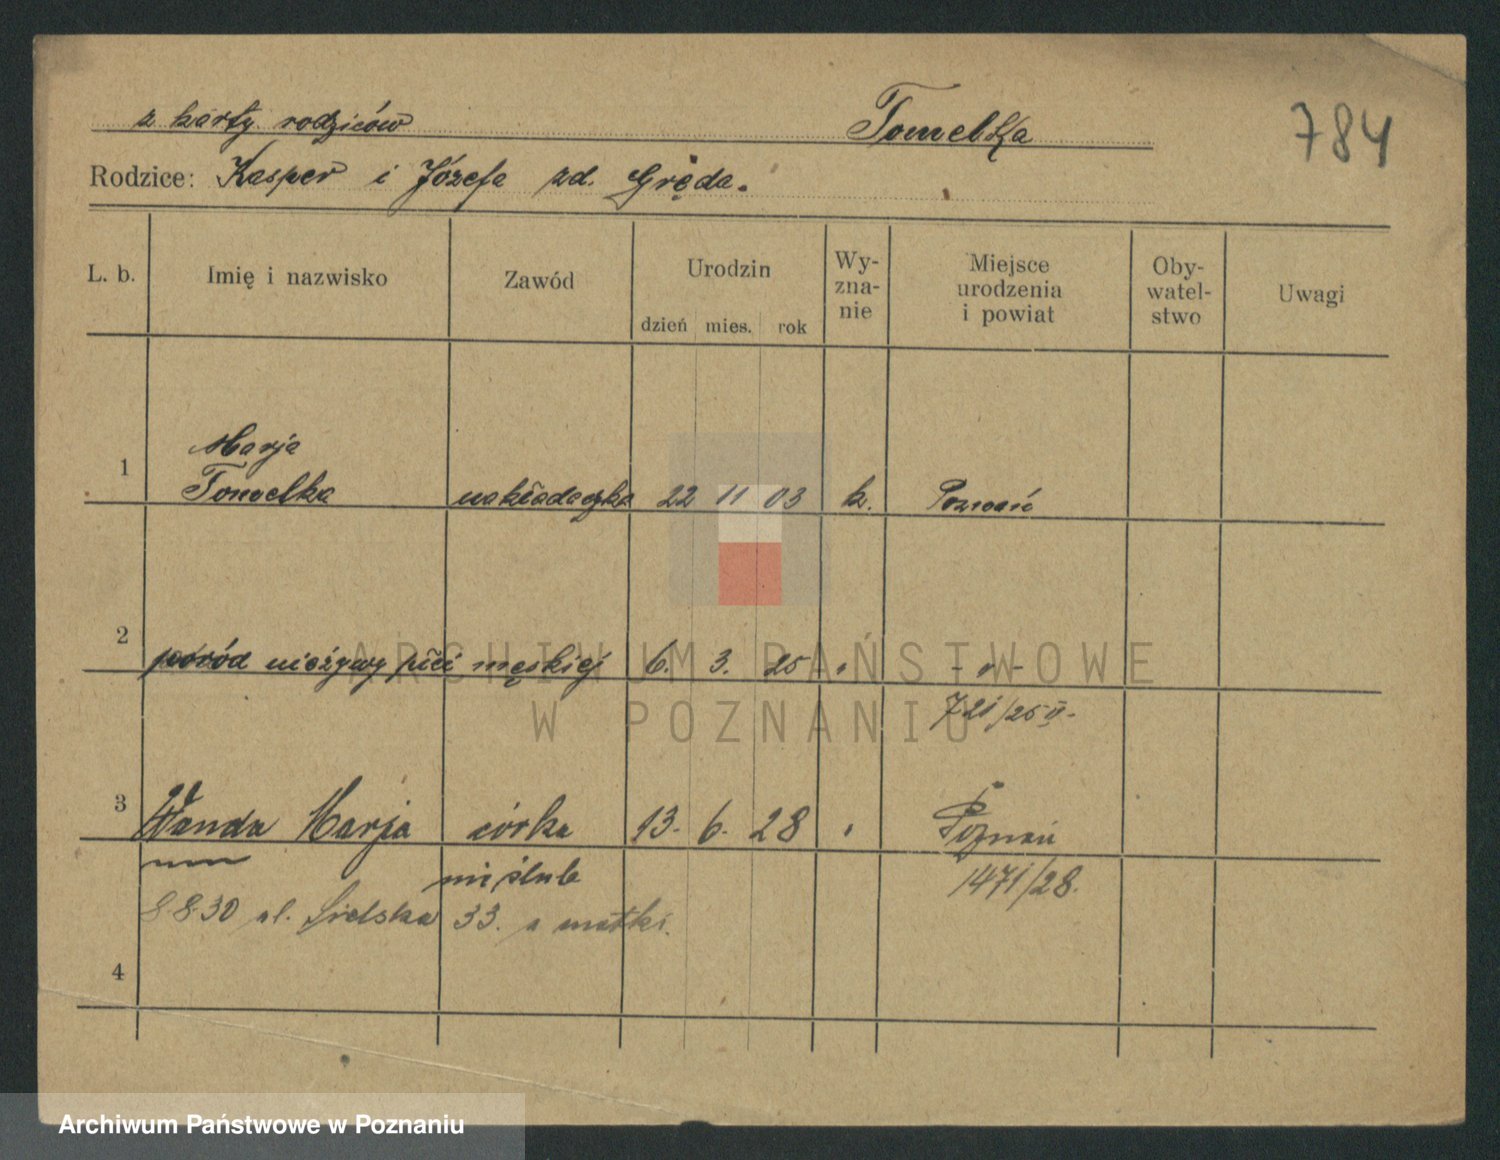 z karty rodziców Tomelka 784
Rodzice: Kasper i Józefa zd. Gręda.
L. b. Imię i nazwisko Zawód Urodzin dzień mies. rok Wy-zna-nie Miejsce urodzenia i powiat Oby-watel-stwo Uwagi
Marja
1 Tomelka nakładaczka 22 11 03 k. Poznań
2 poród nieżywy płci męskiej 6. 3. 25 " - " -
721/25 II.
3 Wanda Marja córka 13. 6. 28 " Poznań
nieślub 1471/28.
8.8.30 ul. Sielska 33. u matki.
4
ARCHIWUM PAŃSTWOWE
W POZNANIU
Archiwum Państwowe w Poznaniu